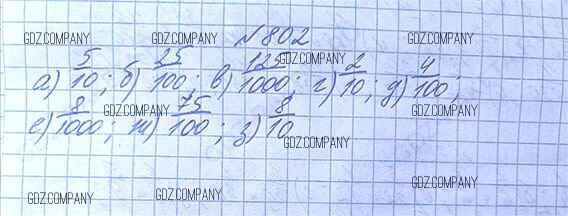 №802
GDZ.COMPANY GDZ.COMPANY GDZ.COMPANY
GDZ.COMPANY
а) 5/10; б) 25/100; в) 125/1000; г) 2/10; д) 4/100;
GDZ.COMPANY GDZ.COMPANY GDZ.COMPANY
е) 8/1000; ж) 75/100; з) 8/10
GDZ.COMPANY
GDZ.COMPANY GDZ.COMPANY GDZ.COMPANY